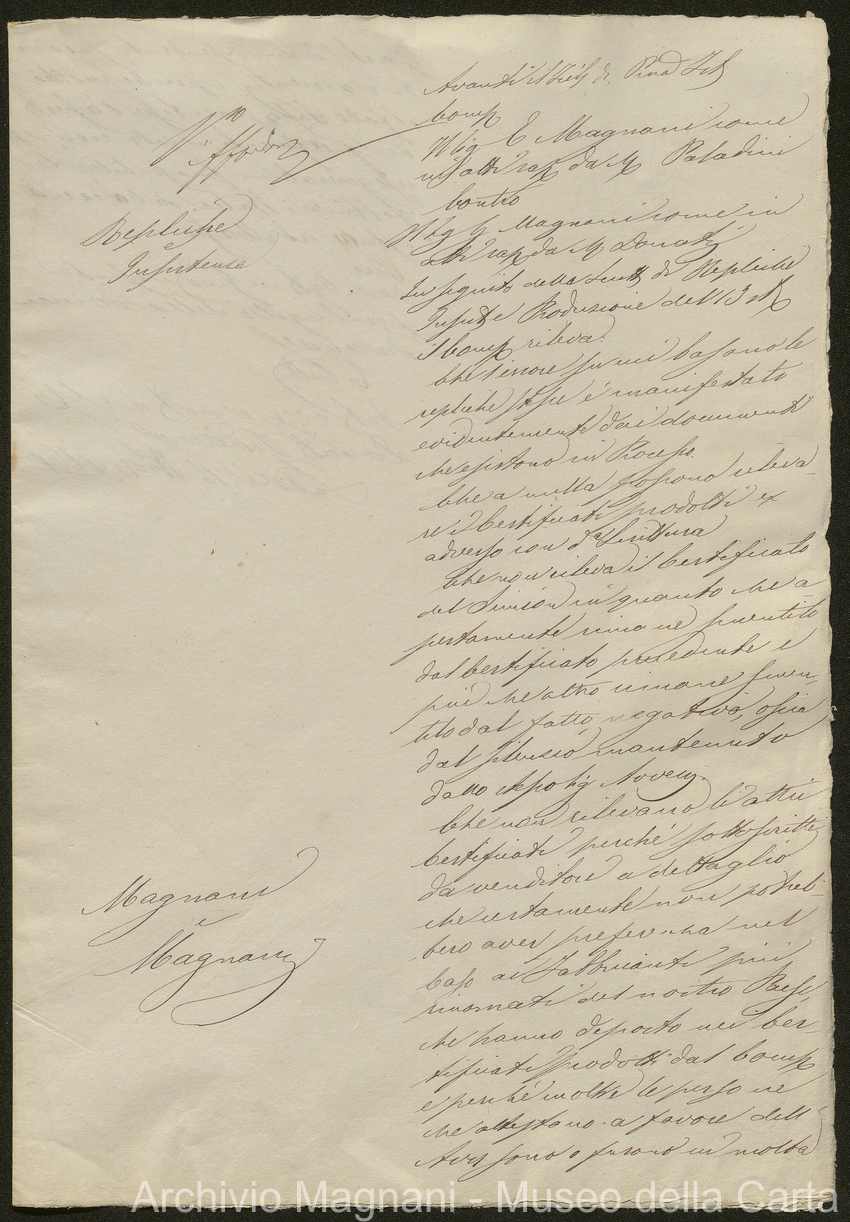 Avanti il
Comp
Il Sig E Magnani come
in atti rap da Mr Paladini
Contro
Il Sig G Magnani come in
atti rap da Mr Donati
In seguito della Scritt di Repliche
e Produzione del 13
il Comp rileva:
Che l'errore su cui basano le
repliche è manifestato
evidentemente dai documenti
che esistono in Processo.
Che a nulla possono rileva-
re i Certificati prodotti ex
adverso con da Scrittura
Che non rileva il Certificato
del in quanto che a-
pertamente rimane smentito
dal Certificato precedente e
più che altro rimane smen-
tito dal fatto negativo, ossia
dal silenzio mantenuto
dallo stesso Sig
Che non rilevano li altri
Certificati perché sottoscritti
da venditori a dettaglio
che certamente non potreb-
bero aver preferenza nel
caso ai Fabbricanti più
rinomati del nostro Paese
che hanno deposto nei Cer-
tificati prodotti dal Comp
e perché inoltre le persone
che attestano a favore dell
Avv sono o furono in molta
Repliche
e
Insistenze
Magnani
e
Magnani
Archivio Magnani - Museo della Carta